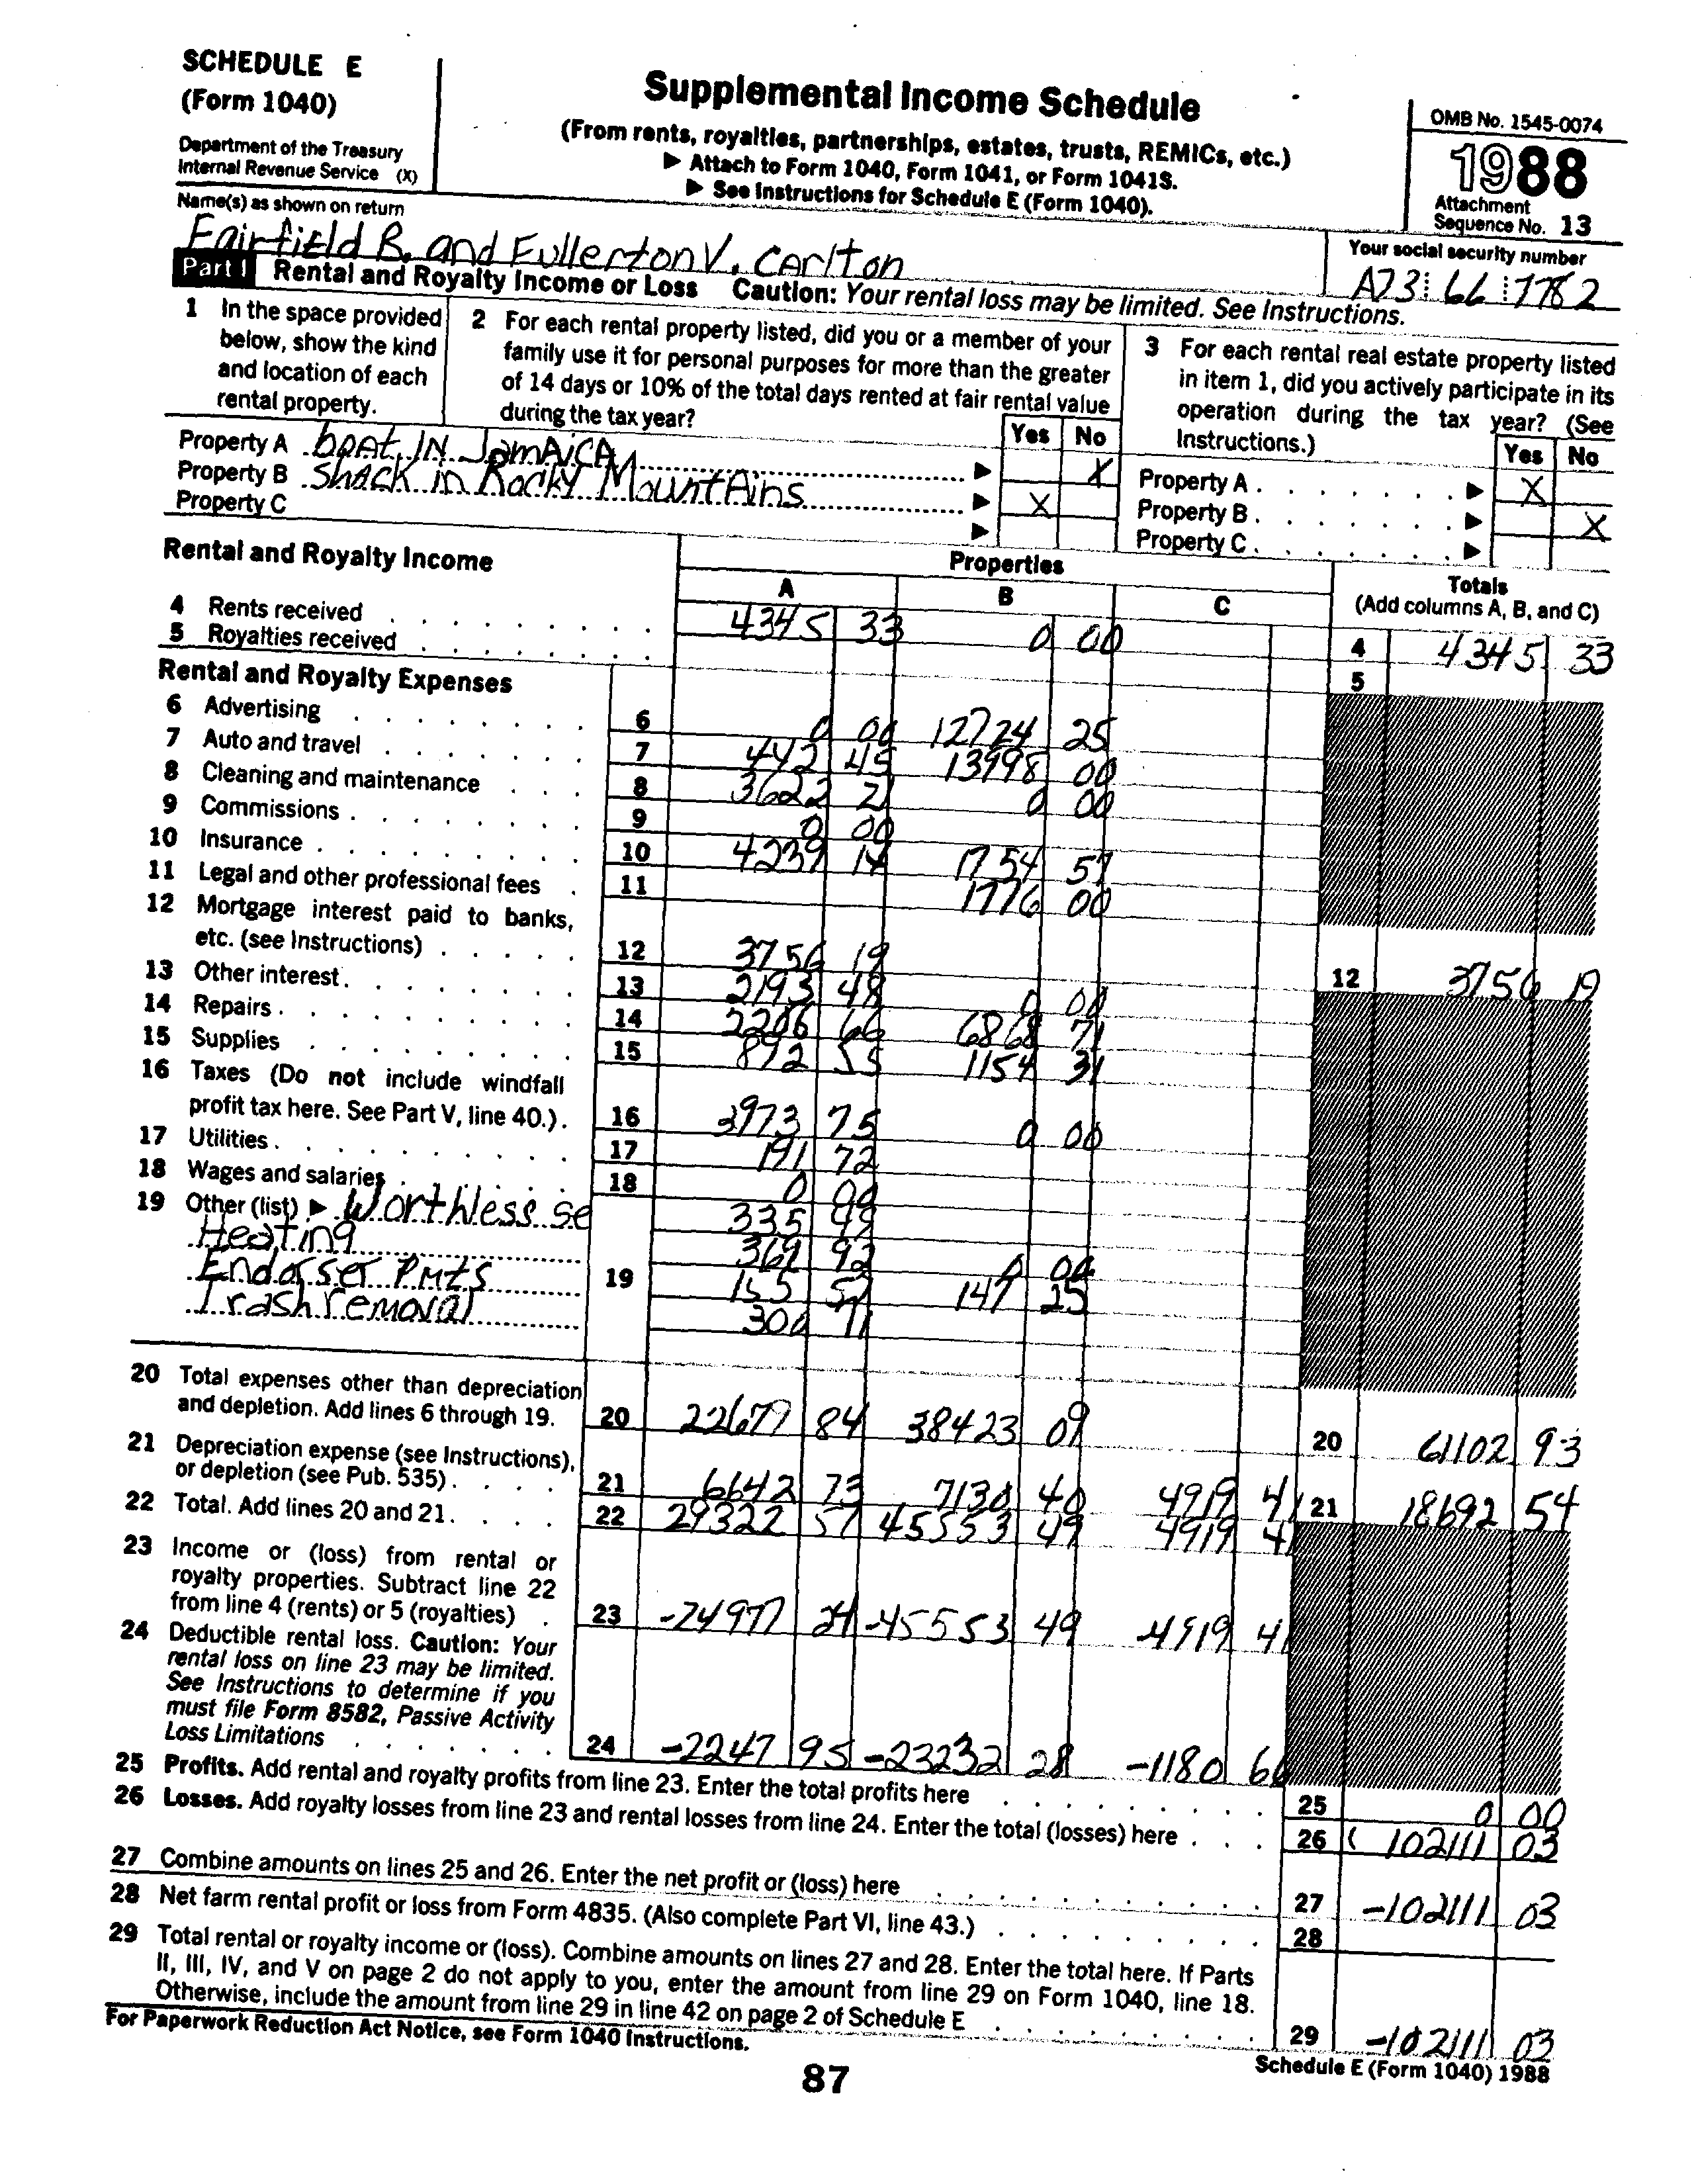 SCHEDULE E
(Form 1040)
Department of the Treasury
Internal Revenue Service (X)
Supplemental Income Schedule
(From rents, royalties, partnerships, estates, trusts, REMICs, etc.)
▶ Attach to Form 1040, Form 1041, or Form 1041S.
▶ See Instructions for Schedule E (Form 1040).
OMB No. 1545-0074
1988
Attachment
Sequence No. 13
Name(s) as shown on return
Fairfield B. and Fullerton V. Carlton
Your social security number
A73 66 7782
Part I Rental and Royalty Income or Loss Caution: Your rental loss may be limited. See Instructions.
1 In the space provided
below, show the kind
and location of each
rental property.
2 For each rental property listed, did you or a member of your
family use it for personal purposes for more than the greater
of 14 days or 10% of the total days rented at fair rental value
during the tax year?
3 For each rental real estate property listed
in item 1, did you actively participate in its
operation during the tax year? (See
Instructions.)
Yes No
Yes No
Property A boat IN Jamaica ▶ X
Property B Shack in Rocky Mountains ▶ X
Property C ▶
Property A ▶ X
Property B ▶ X
Property C ▶
Rental and Royalty Income
Properties
A B C
Totals
(Add columns A, B, and C)
4 Rents received 4345 33 0 00 4 4345 33
5 Royalties received 5
Rental and Royalty Expenses
6 Advertising 6 0 00 12724 25
7 Auto and travel 7 442 45 13998 00
8 Cleaning and maintenance 8 3622 21 0 00
9 Commissions 9 0 00
10 Insurance 10 4239 14 1754 57
11 Legal and other professional fees 11 1776 00
12 Mortgage interest paid to banks,
etc. (see Instructions) 12 3756 19 12 3756 19
13 Other interest 13 2193 48 0 00
14 Repairs 14 2206 66 6868 71
15 Supplies 15 892 55 1154 31
16 Taxes (Do not include windfall
profit tax here. See Part V, line 40.) 16 3973 75 0 00
17 Utilities 17 191 72
18 Wages and salaries 18 0 00
19 Other (list) ▶ Worthless se 335 49
Heating 369 92 0 00
Endorser Pmts 19 155 57 147 25
Trash removal 300 71
20 Total expenses other than depreciation
and depletion. Add lines 6 through 19. 20 22679 84 38423 09 20 61102 93
21 Depreciation expense (see Instructions),
or depletion (see Pub. 535) 21 6642 73 7130 40 4919 41 21 18692 54
22 Total. Add lines 20 and 21 22 29322 57 45553 49 4919 41
23 Income or (loss) from rental or
royalty properties. Subtract line 22
from line 4 (rents) or 5 (royalties) 23 -24977 24 -45553 49 -4919 41
24 Deductible rental loss. Caution: Your
rental loss on line 23 may be limited.
See Instructions to determine if you
must file Form 8582, Passive Activity
Loss Limitations 24 -2247 95 -23232 28 -1180 66
25 Profits. Add rental and royalty profits from line 23. Enter the total profits here 25 0 00
26 Losses. Add royalty losses from line 23 and rental losses from line 24. Enter the total (losses) here 26 ( 102111 03
27 Combine amounts on lines 25 and 26. Enter the net profit or (loss) here 27 -102111 03
28 Net farm rental profit or loss from Form 4835. (Also complete Part VI, line 43.) 28
29 Total rental or royalty income or (loss). Combine amounts on lines 27 and 28. Enter the total here. If Parts
II, III, IV, and V on page 2 do not apply to you, enter the amount from line 29 on Form 1040, line 18.
Otherwise, include the amount from line 29 in line 42 on page 2 of Schedule E 29 -102111 03
For Paperwork Reduction Act Notice, see Form 1040 Instructions.
Schedule E (Form 1040) 1988
87